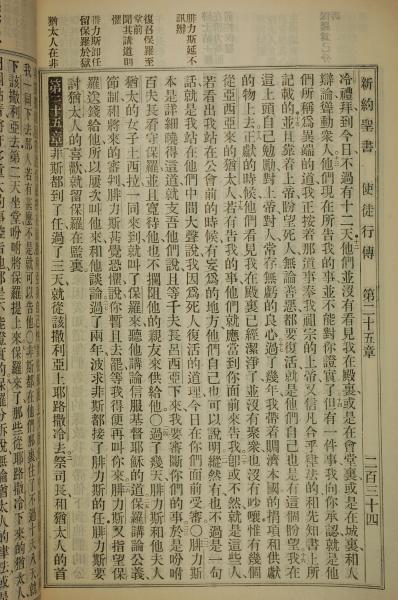 新約聖書 使徒行傳 第二十五章 二百三十四
冷禮拜到今日不過有十二天他們並沒有看見我在殿裏或是在會堂裏或是在城裏和人
辯論聳動衆人他們現在所告我的事並不能對你證實了但有一件事我向你承認就是他
們所稱爲異端的道我正按着那道事奉我祖宗的上帝又信凡合乎律法的和先知書上所
記載的並且靠着上帝盼望死人無論善惡都要復活就是他們自己也是有這個盼望我在
這上頭自己勉勵對上帝對人常存無虧的良心過了幾年我帶着賙濟本國的捐項和供獻
的物上去正獻的時候他們看見我在殿裏已經潔淨了並沒有聚衆也沒有吵嚷惟有幾個
從亞西亞來的猶太人若有告我的事他們就應當到你面前來告我卽或不然就是這些人
若看出我站在公會前的時候有妄爲的地方他們自己也可以說明縱然有也不過是一句
話就是我站在他們中間大聲說我因爲死人復活的道理今日在你們面前受審〇腓力斯
本是詳細曉得這道就支吾他們說且等千夫長呂西亞下來我要審斷你們的事於是吩咐
百夫長看守保羅並且寬待他也不攔阻他的親友來供給他〇過了幾天腓力斯和他夫人
猶太的女子土西拉一同來到就叫了保羅來聽他講論信服基督耶穌的道保羅講論公義
節制和將來的審判腓力斯甚覺恐懼說你暫且去罷等我得便再叫你來腓力斯又指望保
羅送錢給他所以屢次叫他來和他談論過了兩年波求非斯都接了腓力斯的任腓力斯要
討猶太人的喜歡就留保羅在監裏
第二十五章 非斯都到了任過了三天就從該撒利亞上耶路撒冷去祭司長和猶太人的首
腓力斯延不
訊辦
復召保羅至
堂前
聞其講道
腓力斯卸任
留保羅於獄
猶太人在非